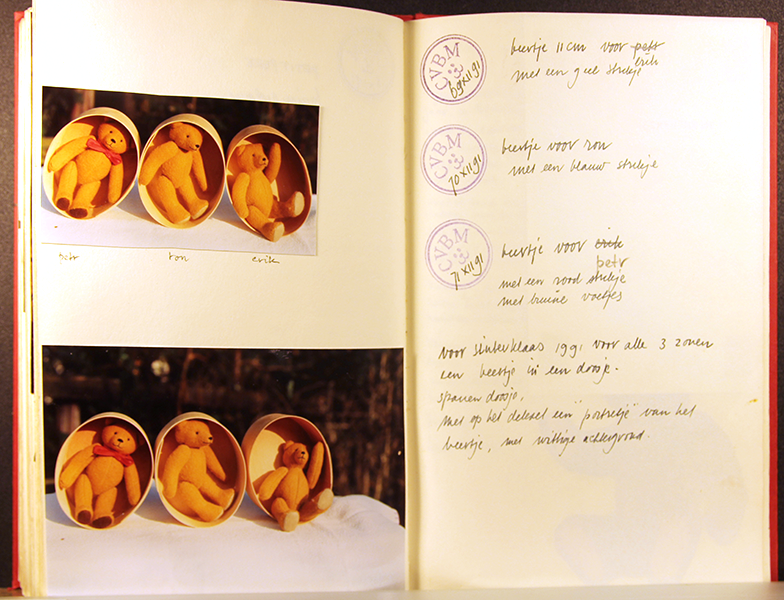 petr ron erik
CVBM
69 XII 91
beertje 11 cm voor petr
erik
met een geel strikje
CVBM
70 XII 91
beertje voor ron
met een blauw strikje
CVBM
71 XII 91
beertje voor erik
petr
met een rood strikje
met bruine voetjes
voor sinterklaas 1991 voor alle 3 zonen
een beertje in een doosje.
spanen doosje,
met op het deksel een "portretje" van het
beertje, met wittige achtergrond.